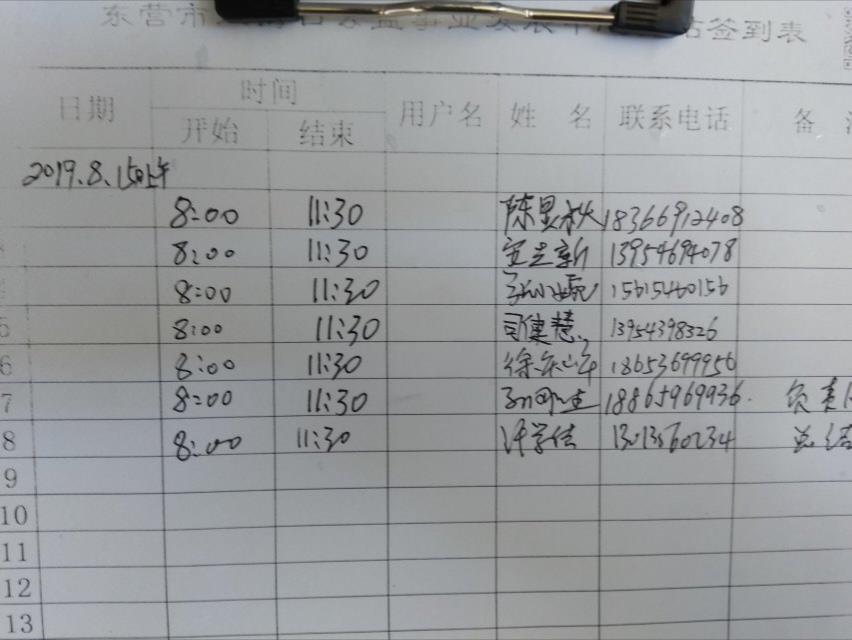 东营市 签到表
日期 时间 用户名 姓 名 联系电话 备
开始 结束
2019.8.15日上午
8:00 11:30 陈昱秋 18366912408
8:00 11:30 13954694078
8:00 11:30 15615460156
8:00 11:30 司健慧 13954398326
6 8:00 11:30 18653699956
7 8:00 11:30 18865969936. 负责
8 8:00 11:30 许学信 13013560234 总结
9
10
11
12
13